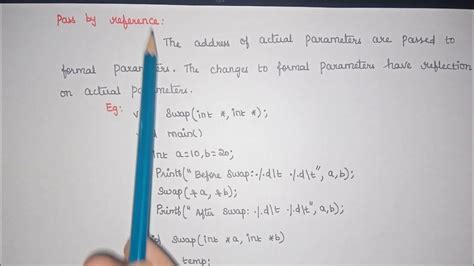 Pass by reference:
The address of actual parameters are passed to
formal parameters. The changes to formal parameters have reflection
on actual parameters.
Eg: Swap(int *, int *);
main()
int a=10, b=20;
Printf("Before Swap: %d\t %d\t", a,b);
Swap(&a, &b);
Printf("After Swap: %d\t %d\t", a,b);
Swap(int *a, int *b)
temp;